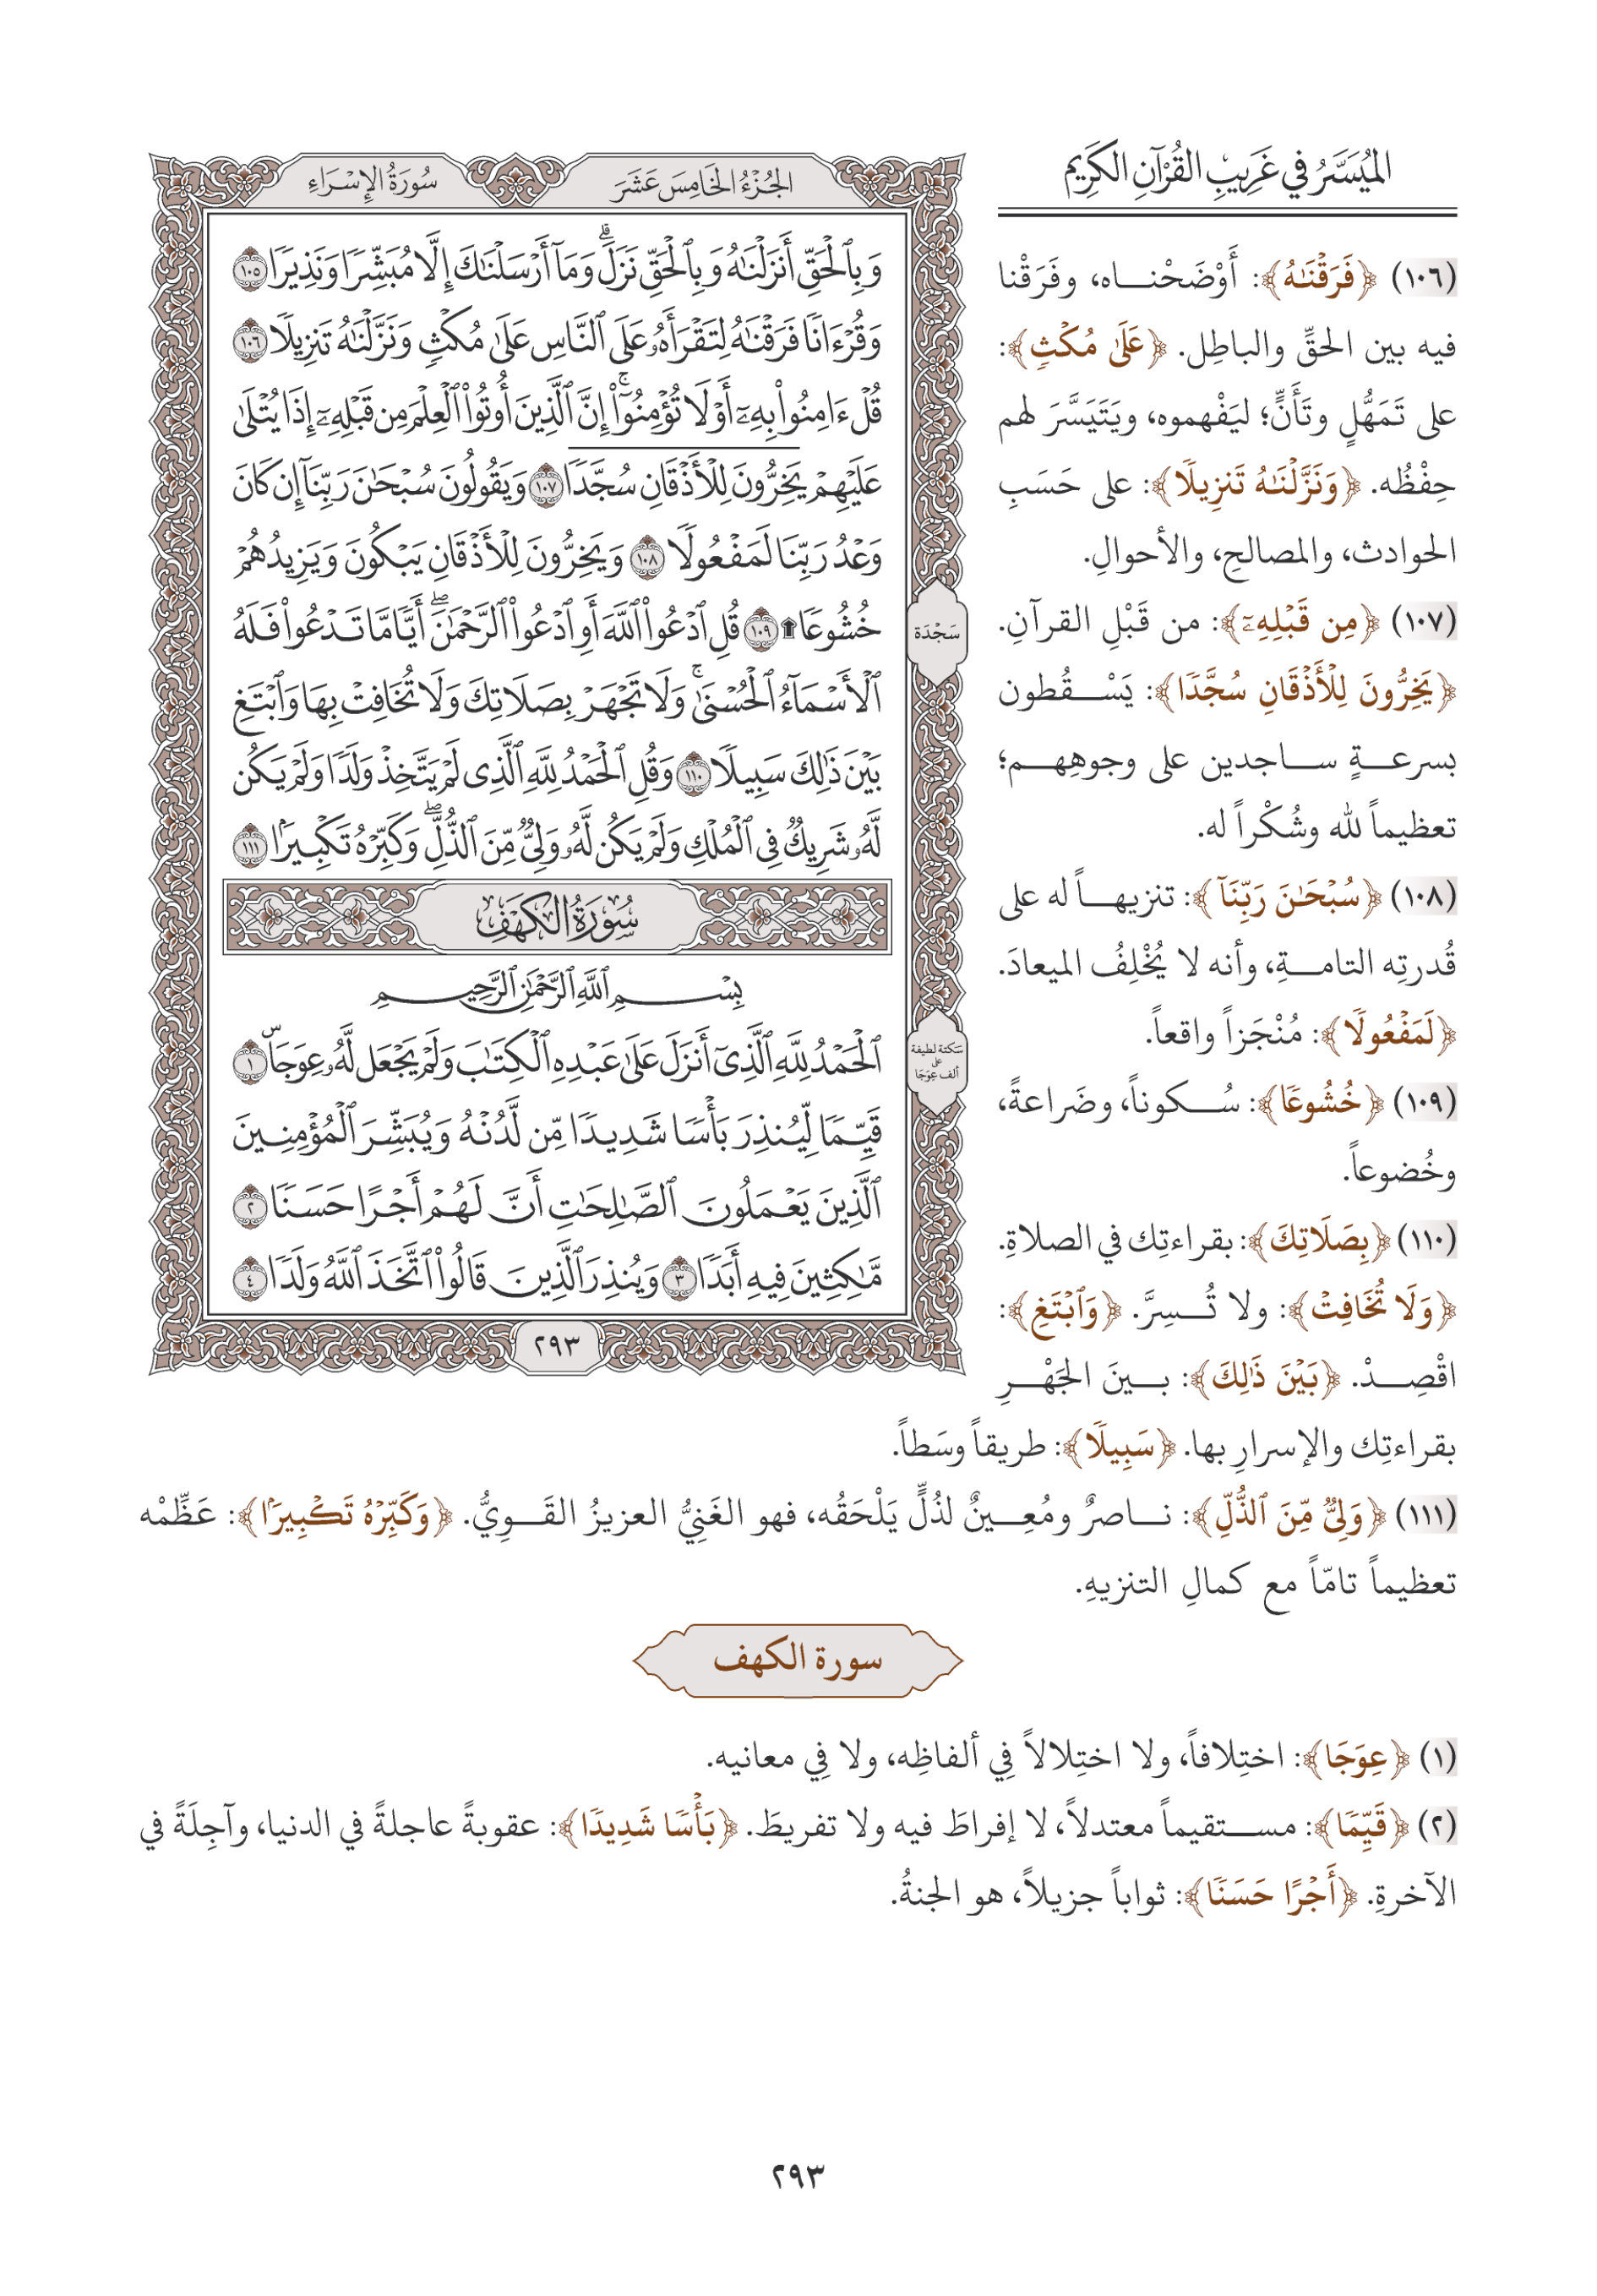 الميُسَّرُ في غَرِيبِ القُرْآنِ الكَرِيم
(١٠٦) ﴿فَرَقْنَٰهُ﴾: أَوْضَحْناه، وفَرَقْنا
فيه بين الحقِّ والباطِل. ﴿عَلَىٰ مُكْثٖ﴾:
على تَمَهُّلٍ وتَأَنٍّ؛ ليَفْهموه، ويَتَيَسَّرَ لهم
حِفْظُه. ﴿وَنَزَّلْنَٰهُ تَنزِيلٗا﴾: على حَسَبِ
الحوادث، والمصالحِ، والأحوالِ.
(١٠٧) ﴿مِن قَبْلِهِۦٓ﴾: من قَبْلِ القرآنِ.
﴿يَخِرُّونَ لِلْأَذْقَانِ سُجَّدٗا﴾: يَسْقُطون
بسرعةٍ ساجدين على وجوهِهم؛
تعظيماً لله وشُكْراً له.
(١٠٨) ﴿سُبْحَٰنَ رَبِّنَآ﴾: تنزيهاً له على
قُدرتِه التامةِ، وأنه لا يُخْلِفُ الميعادَ.
﴿لَمَفْعُولٗا﴾: مُنْجَزاً واقعاً.
(١٠٩) ﴿خُشُوعٗا﴾: سُكوناً، وضَراعةً،
وخُضوعاً.
(١١٠) ﴿بِصَلَاتِكَ﴾: بقراءتِك في الصلاةِ.
﴿وَلَا تُخَافِتْ﴾: ولا تُسِرَّ. ﴿وَٱبْتَغِ﴾:
اقْصِدْ. ﴿بَيْنَ ذَٰلِكَ﴾: بينَ الجَهْرِ
بقراءتِك والإسرارِ بها. ﴿سَبِيلٗا﴾: طريقاً وسَطاً.
(١١١) ﴿وَلِيّٞ مِّنَ ٱلذُّلِّ﴾: ناصرٌ ومُعِينٌ لذُلٍّ يَلْحَقُه، فهو الغَنِيُّ العزيزُ القَوِيُّ. ﴿وَكَبِّرْهُ تَكْبِيرَۢا﴾: عَظِّمْه
تعظيماً تامّاً مع كمالِ التنزيهِ.
الجُزْءُ الخَامِسَ عَشَرَ
سُورَةُ الإِسْرَاءِ
وَبِٱلْحَقِّ أَنزَلْنَٰهُ وَبِٱلْحَقِّ نَزَلَۗ وَمَآ أَرْسَلْنَٰكَ إِلَّا مُبَشِّرٗا وَنَذِيرٗا ١٠٥
وَقُرْءَانٗا فَرَقْنَٰهُ لِتَقْرَأَهُۥ عَلَى ٱلنَّاسِ عَلَىٰ مُكْثٖ وَنَزَّلْنَٰهُ تَنزِيلٗا ١٠٦
قُلْ ءَامِنُوا۟ بِهِۦٓ أَوْ لَا تُؤْمِنُوٓا۟ۚ إِنَّ ٱلَّذِينَ أُوتُوا۟ ٱلْعِلْمَ مِن قَبْلِهِۦٓ إِذَا يُتْلَىٰ
عَلَيْهِمْ يَخِرُّونَ لِلْأَذْقَانِ سُجَّدٗا ١٠٧ وَيَقُولُونَ سُبْحَٰنَ رَبِّنَآ إِن كَانَ
وَعْدُ رَبِّنَا لَمَفْعُولٗا ١٠٨ وَيَخِرُّونَ لِلْأَذْقَانِ يَبْكُونَ وَيَزِيدُهُمْ
خُشُوعٗا۩ ١٠٩ قُلِ ٱدْعُوا۟ ٱللَّهَ أَوِ ٱدْعُوا۟ ٱلرَّحْمَٰنَۖ أَيّٗا مَّا تَدْعُوا۟ فَلَهُ
ٱلْأَسْمَآءُ ٱلْحُسْنَىٰۚ وَلَا تَجْهَرْ بِصَلَاتِكَ وَلَا تُخَافِتْ بِهَا وَٱبْتَغِ
بَيْنَ ذَٰلِكَ سَبِيلٗا ١١٠ وَقُلِ ٱلْحَمْدُ لِلَّهِ ٱلَّذِى لَمْ يَتَّخِذْ وَلَدٗا وَلَمْ يَكُن
لَّهُۥ شَرِيكٞ فِى ٱلْمُلْكِ وَلَمْ يَكُن لَّهُۥ وَلِيّٞ مِّنَ ٱلذُّلِّۖ وَكَبِّرْهُ تَكْبِيرَۢا ١١١
سُورَةُ الكَهْفِ
بِسْمِ ٱللَّهِ ٱلرَّحْمَٰنِ ٱلرَّحِيمِ
ٱلْحَمْدُ لِلَّهِ ٱلَّذِىٓ أَنزَلَ عَلَىٰ عَبْدِهِ ٱلْكِتَٰبَ وَلَمْ يَجْعَل لَّهُۥ عِوَجَاۜ ١
قَيِّمٗا لِّيُنذِرَ بَأْسٗا شَدِيدٗا مِّن لَّدُنْهُ وَيُبَشِّرَ ٱلْمُؤْمِنِينَ
ٱلَّذِينَ يَعْمَلُونَ ٱلصَّٰلِحَٰتِ أَنَّ لَهُمْ أَجْرًا حَسَنٗا ٢
مَّٰكِثِينَ فِيهِ أَبَدٗا ٣ وَيُنذِرَ ٱلَّذِينَ قَالُوا۟ ٱتَّخَذَ ٱللَّهُ وَلَدٗا ٤
سَجْدَة
سَكتة لطيفة
على
ألف عِوَجَا
٢٩٣
سورة الكهف
(١) ﴿عِوَجَا﴾: اختِلافاً، ولا اختِلالاً فِي ألفاظِه، ولا فِي معانيه.
(٢) ﴿قَيِّمٗا﴾: مستقيماً معتدلاً، لا إفراطَ فيه ولا تفريطَ. ﴿بَأْسٗا شَدِيدٗا﴾: عقوبةً عاجلةً في الدنيا، وآجِلَةً في
الآخرةِ. ﴿أَجْرًا حَسَنٗا﴾: ثواباً جزيلاً، هو الجنةُ.
٢٩٣